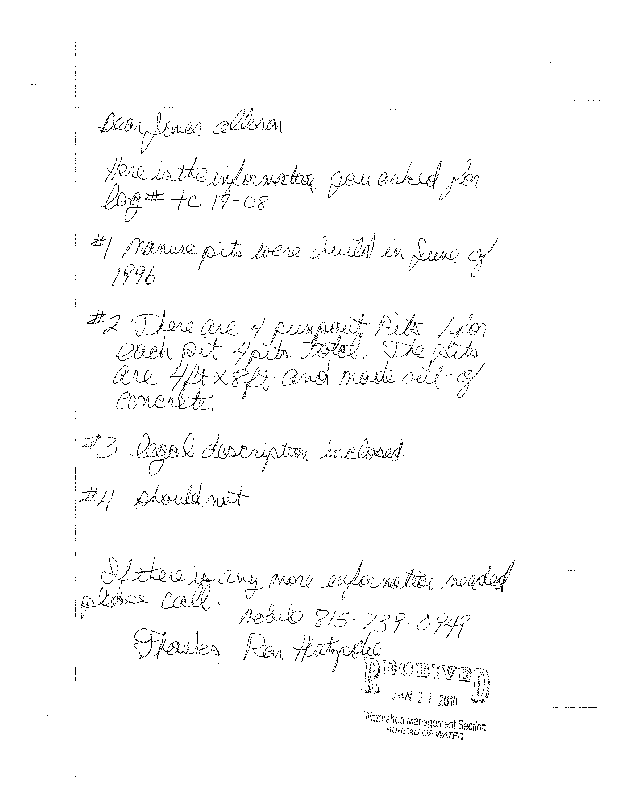 Dear James
Here is the information you asked for
log # TC 19-08
#1 Manure pits were build in June of
1996
#2 There are 4 pumpout Pits 1 for
each pit 4 pits total. The pits
are 4ft x 8ft and made out of
concrete.
#3 Legal description inclosed
#4 should not
If there is any more information needed
please call.
Mobile 815-739-0949
Thanks Ron
RECEIVED
JAN 21
Information Management Section
BUREAU OF WATER